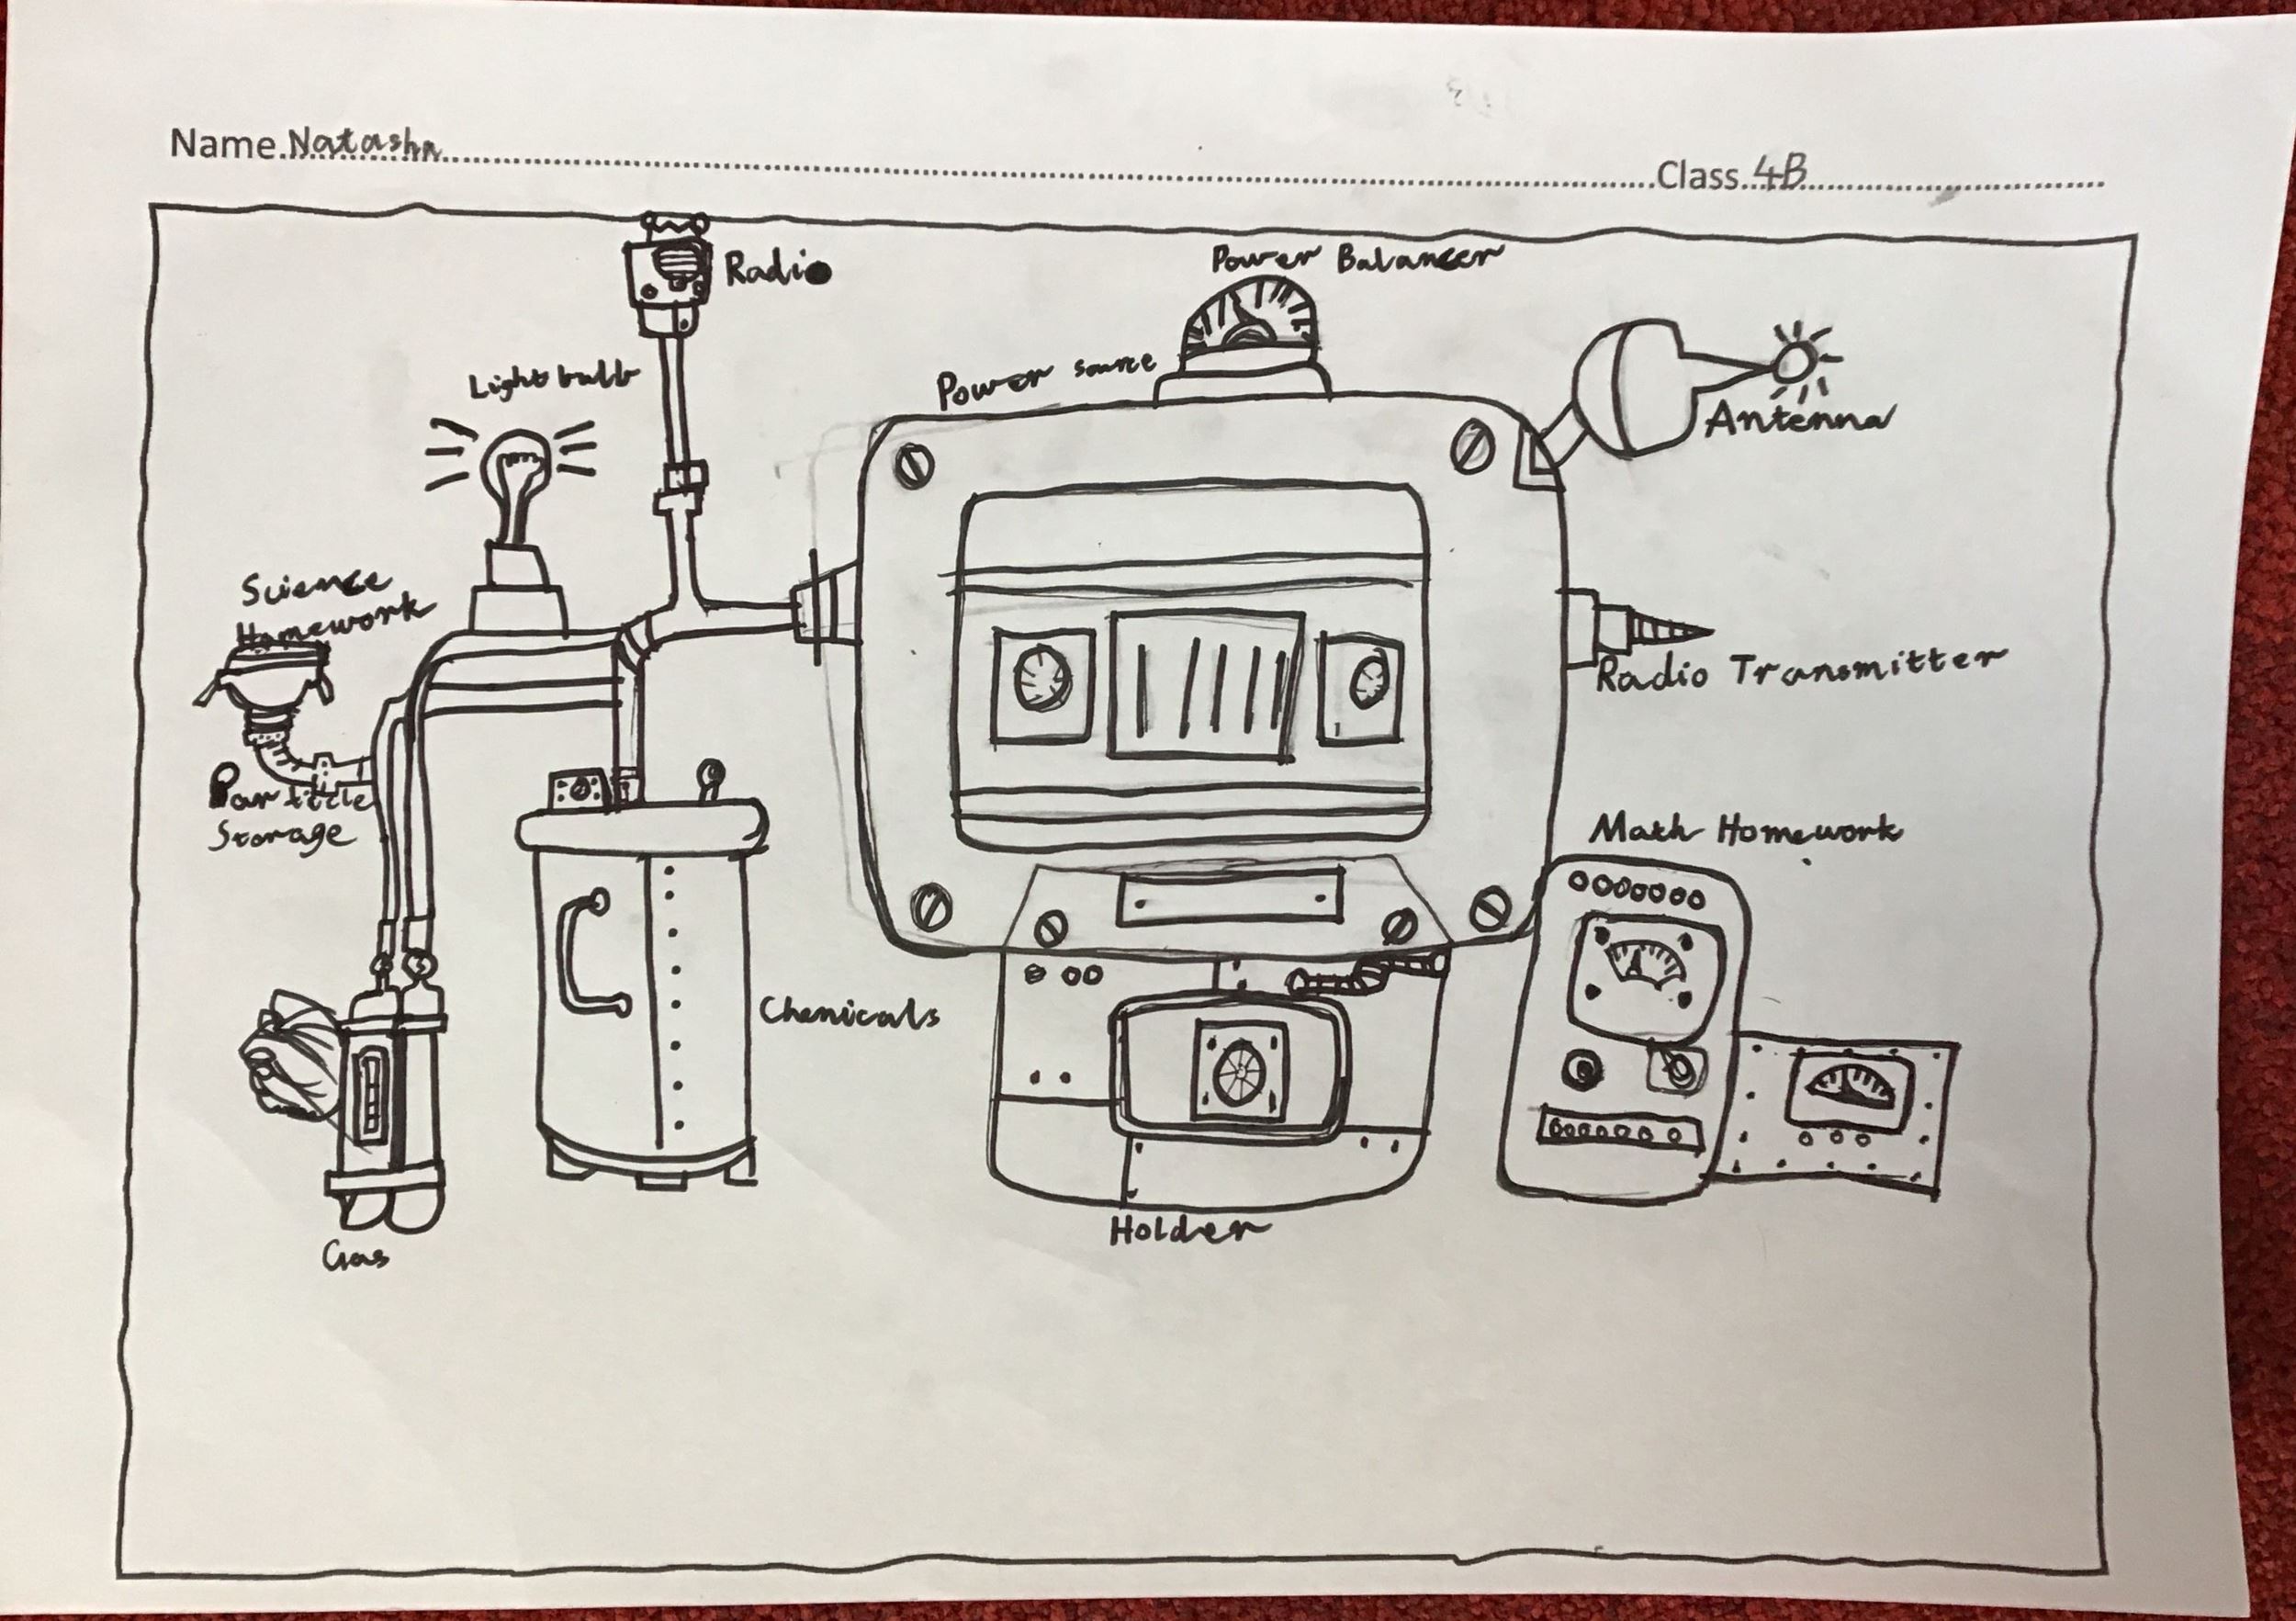 Name Natasha Class 4B
Radio
Power Balancer
Light bulb
Power source
Antenna
Science
Homework
Radio Transmitter
Particle
Storage
Math Homework
Chemicals
Holder
Gas